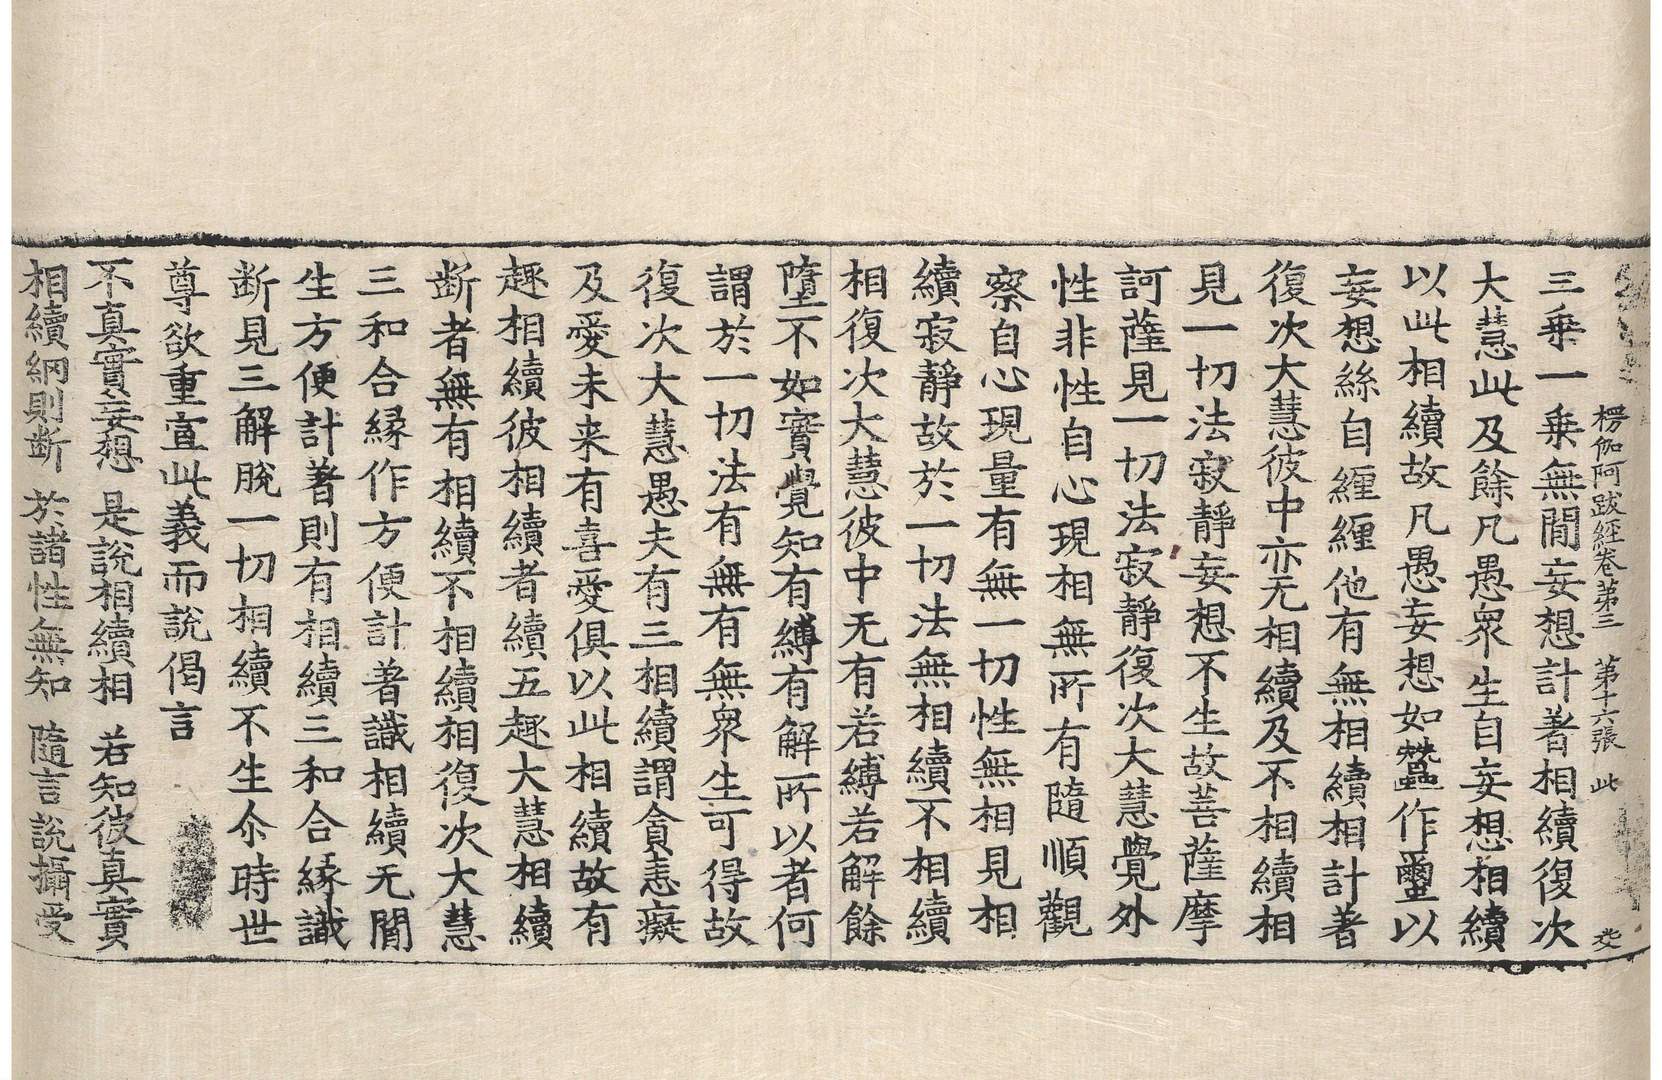 楞伽阿跋經卷第三　第十六張　此
三乗一乗無閒妄想計著相續復次
大慧此及餘凡愚衆生自妄想相續
以此相續故凡愚妄想如蠶作𠕀以
妄想絲自纒纒他有無相續相計著
復次大慧彼中亦无相續及不相續相
見一切法寂靜妄想不生故菩薩摩
訶薩見一切法寂靜復次大慧覺外
性非性自心現相無所有隨順觀
察自心現量有無一切性無相見相
續寂靜故於一切法無相續不相續
相復次大慧彼中无有若縛若解餘
墮不如實覺知有縛有解所以者何
謂於一切法有無有無衆生可得故
復次大慧愚夫有三相續謂貪恚癡
及愛未来有喜愛俱以此相續故有
趣相續彼相續者續五趣大慧相續
断者無有相續不相續相復次大慧
三和合縁作方便計著識相續无閒
生方便計著則有相續三和合縁識
断見三解脫一切相續不生尒時世
尊欲重宣此義而說偈言
不真實妄想　是說相續相　若知彼真實
相續網則断　於諸性無知　隨言說攝受